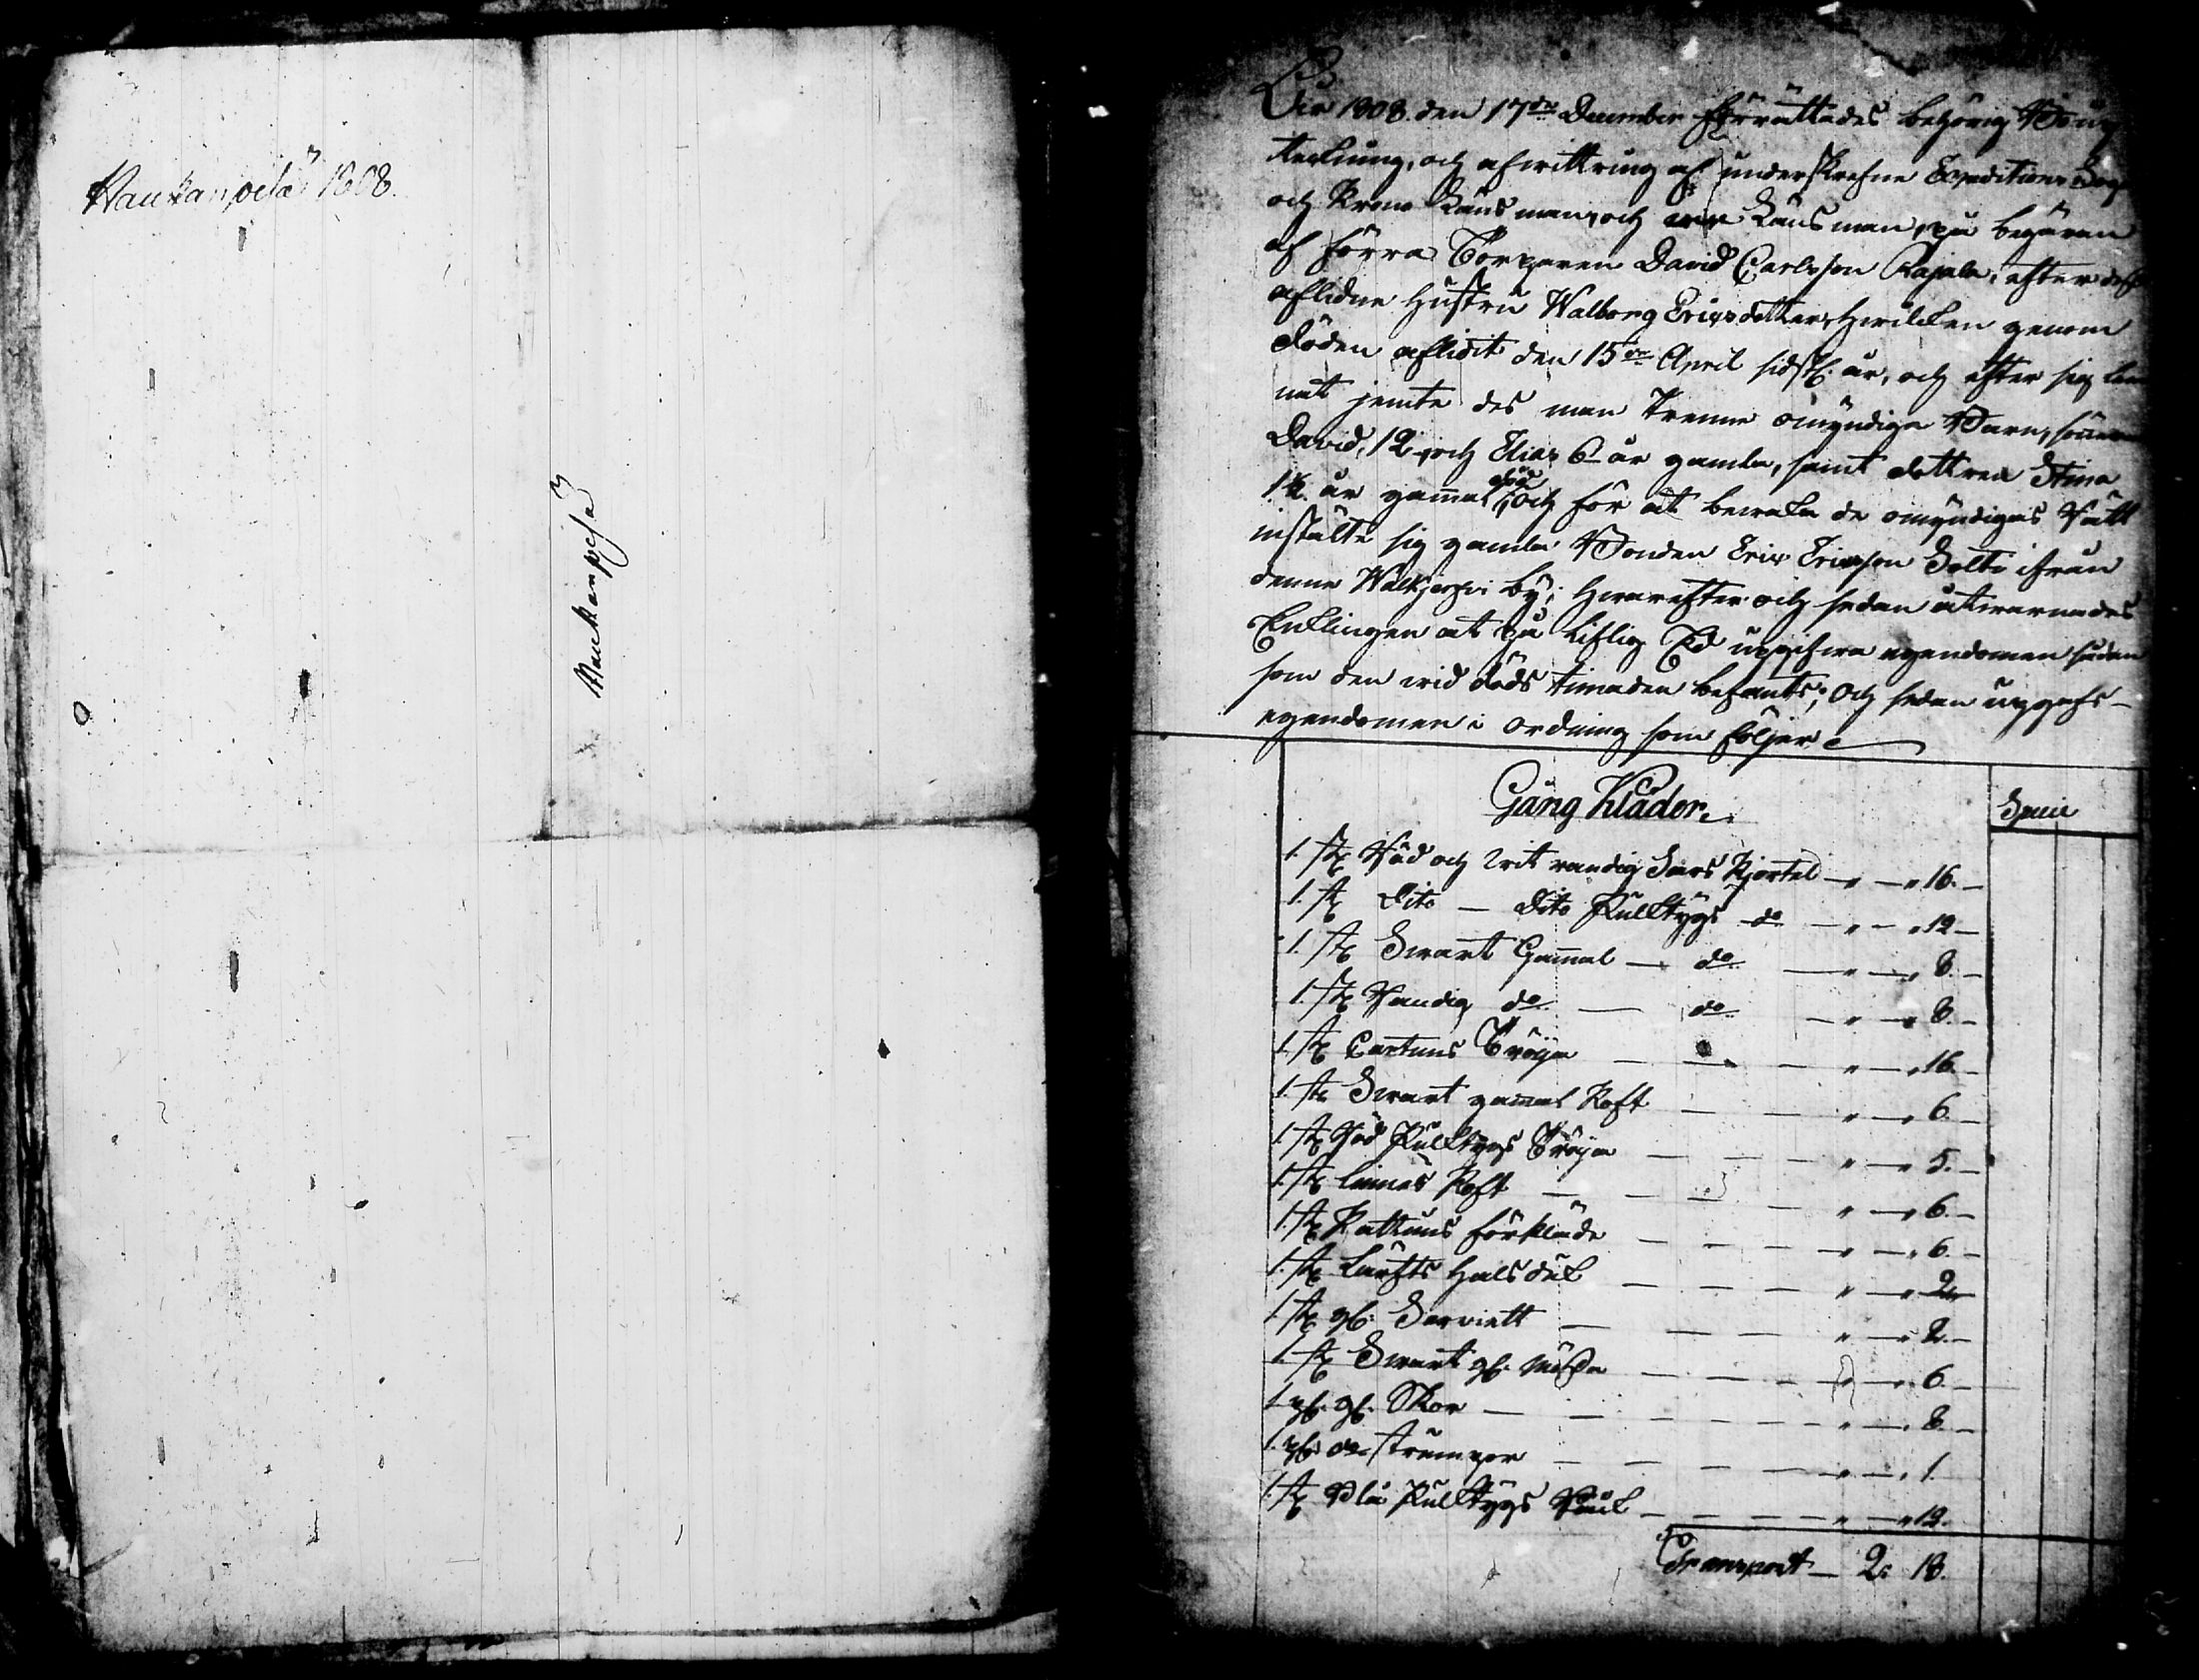 Haukanpesä 1808.
Haukanpesä
År 1808. den 17de December förrättades behörig Boup
teckning, och afwittring af underskrefne Expeditions Fog
och Krono Länsman, och Länsman, på begäran
af förra Torparen David Carlsson Rajala, efter dess
aflidne hustru Walborg Ericsdotter, hwilcken genom
döden aflidit den 15de April sidstl. år, och efter sig lem
nat jemte des man trenne omyndiga Barn, sönerne
David, 12, och Elias 6 år gamla, samt dottren Stina
1½ år gamal, och för at bewaka de omyndigas Rätt
instälte sig gamla Bonden Eric Ericsson Solti ifrån
denne Walkjerfvi by; hwarefter och sedan åtwarnades
Enklingen at på Liflig Ed uppgifwa egendomen sådan
som den wid döds timaden befants; och sedan uppgafs
egendomen i ordning som följer
Gång Kläder.
Specie
1. st. Röd och hvit randig Sars Kjortel — „ — „ 16. —
1. st. Dito — Dito Kulltygs do — „ — „ 12 —
1. st. Swart Gamal — do — „ — „ 8. —
1. st. Randig do — do — „ — „ 8. —
1. st. Cartuns Tröija — — — „ — „ 16. —
1. st. Swart gamal Koft — — „ — „ 6. —
1. st. Röd Kulltygs Tröija — — — „ — „ 5. —
1. st. Linnes Koft — — — „ — „ 6. —
1. st. Kattuns förkläde — — — „ — „ 6. —
1. st. Lärfts Halsduk — — — „ — „ 2 —
1. st. gl. Serviett — — — — „ — „ 2. —
1. st. Swart gl. Mössa — — — „ — „ 6 —
1. pr. gl. Skor — — — — — „ — „ 8. —
1. pr. do strumpor — — — — „ — „ 1.
1. st. Blå Kulltygs — — — — „ — „ 12.
Transport — 2. 18.